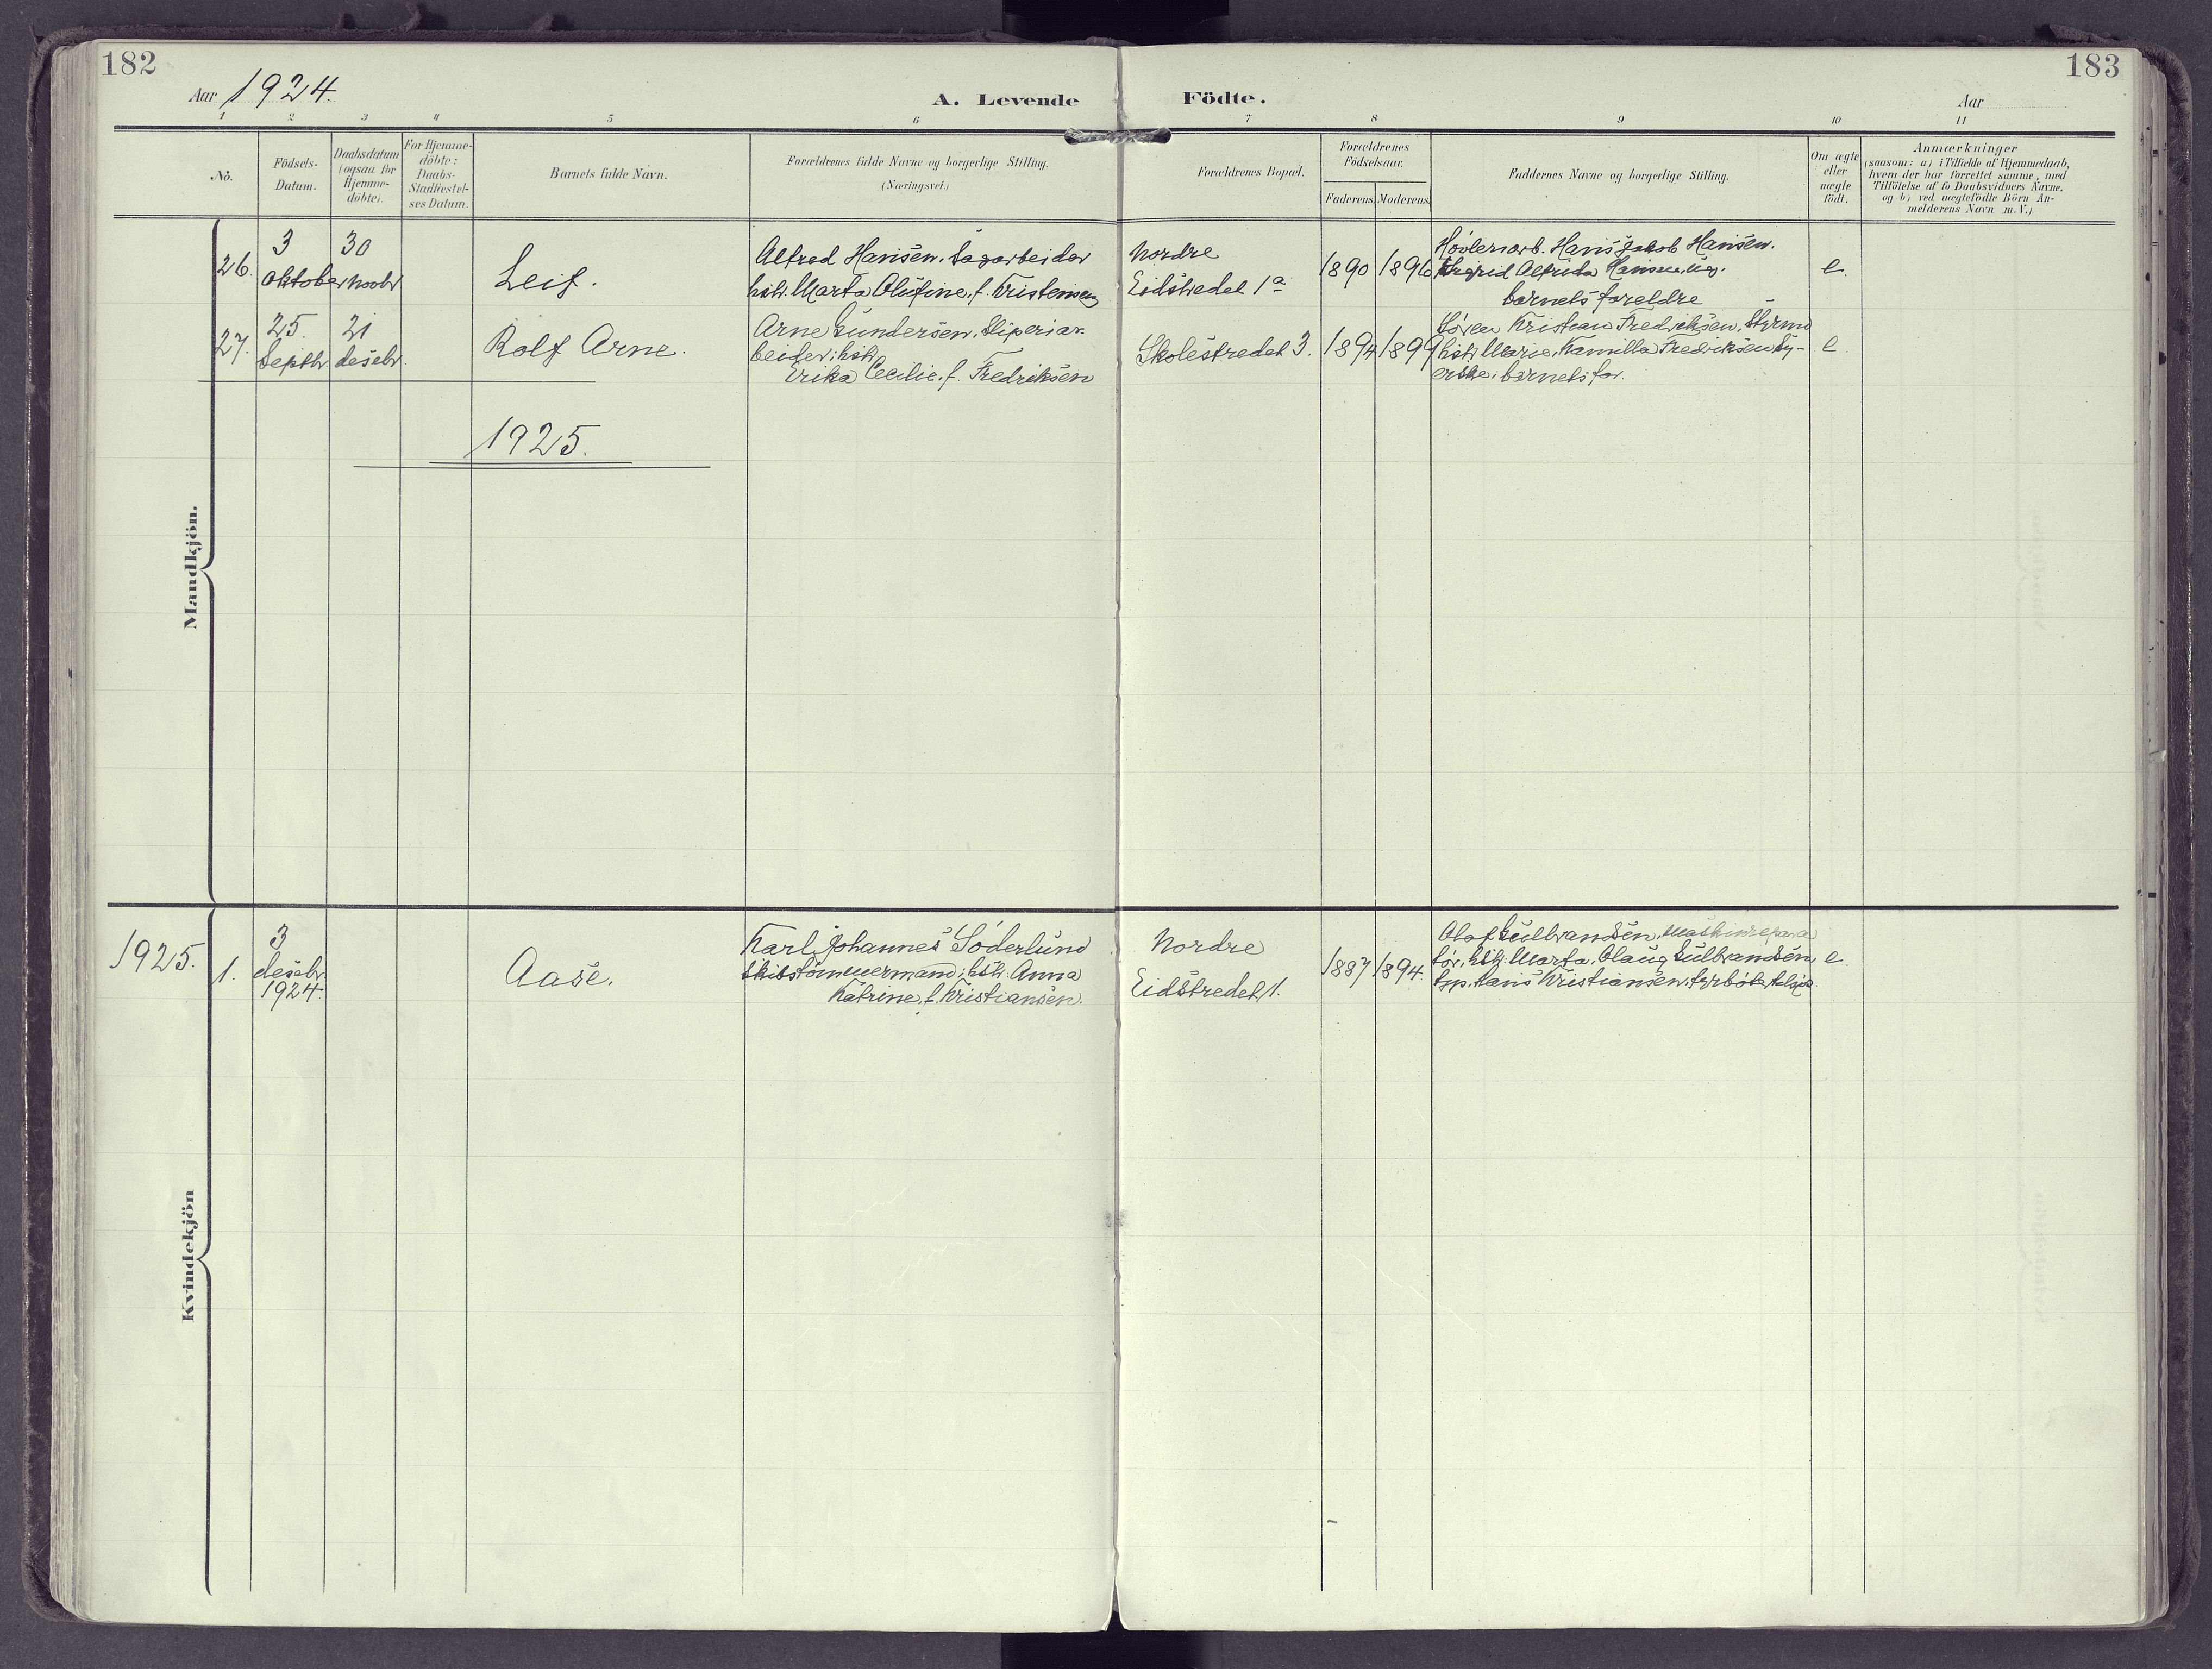 182
183
Aar 1924.
A. Levende Födte.
Aar
1 2 3 4 5 6 7 8 9 10 11
No.
Födsels-
Datum.
Daabsdatum
(ogsaa for
Hjemme-
döbte).
For Hjemme-
döbte:
Daabs-
Stadfæstel-
ses Datum.
Barnets fulde Navn.
Forældrenes fulde Navne og borgerlige Stilling.
(Næringsvei.)
Forældrenes Bopæl.
Forældrenes
Födselsaar.
Faderens. Moderens.
Faddernes Navne og borgerlige Stilling.
Om ægte
eller
uægte
födt.
Anmærkninger
(saasom: a) i Tilfælde af Hjemmedaab,
hvem der har forrettet samme, med
Tilföielse af to Daabsvidners Navne,
og b) ved uægtefödte Börn An-
melderens Navn m. V.)
Mandkjön.
26.
3
oktober
30
novbr
Leif.
Alfred Hansen. Sagarbeider
hstr. Marta Olufine, f. Kristensen
Nordre
Eidstredet 1a
1890 1896
Høvleriarb. Hans Jakob Hansen.
Ingrid Alfrida Hansen
barnets foreldre
e.
27.
25.
Septbr.
21
desebr.
Rolf Arne.
Arne Gundersen. Sliperiar-
beider; hstr.
Erika Cecilie, f. Fredriksen
Skolestredet 3.
1894 1899
Søren Kristian Fredriksen, Styrmd
hstr. Marie, Kamilla Fredriksen Sy-
erske, barnets for.
e.
1925.
Kvindekjön
1925.
1.
3
desebr.
1924.
Aase.
Karl Johannes Söderlund
skibstömmermand; hstr. Anna
Katrine, f. Kristiansen.
Nordre
Eidstredet 1.
1887 1894.
Olaf Gulbrandsen, maskinrepara
tør, hstr. Marta, Olaug Gulbrandsen,
Hans Kristiansen, fyrbøter
e.